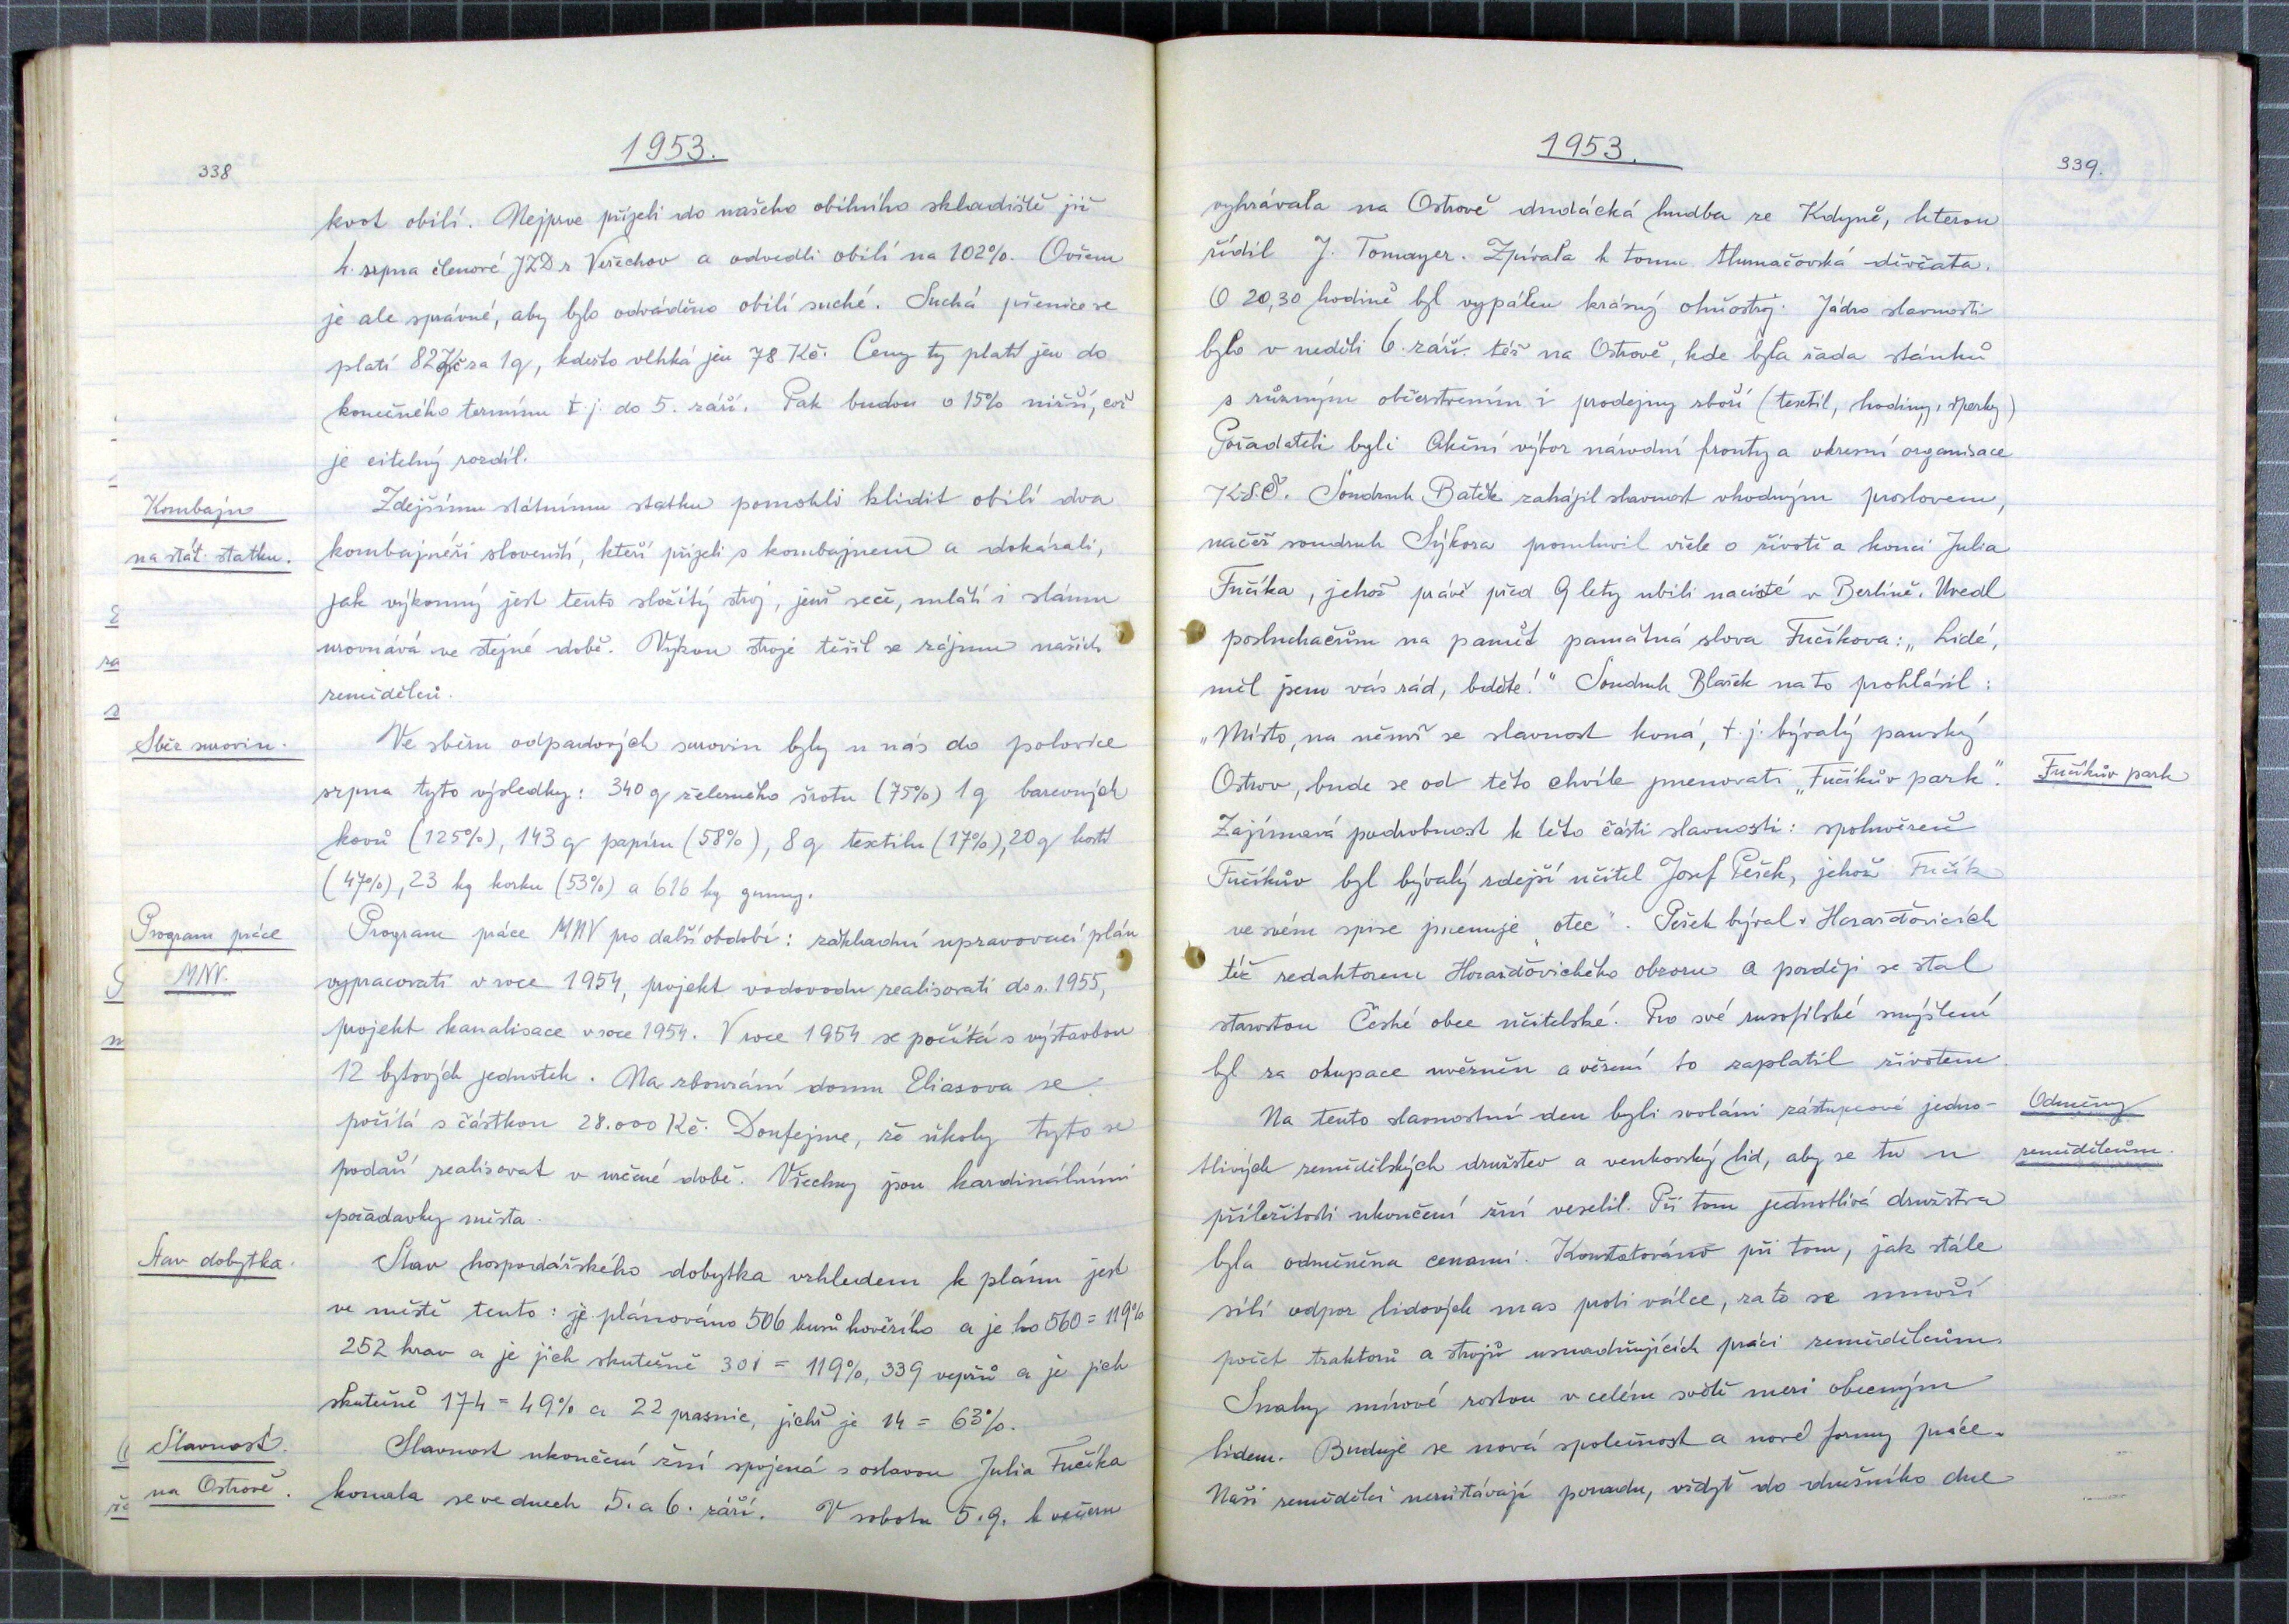 338
1953.
kvot obilí. Nejprve přijeli do našeho obilního skladiště již
4. srpna členové JZD z Veřechov a odvedli obilí na 102%. Ovšem
je ale správné, aby bylo odváděno obilí suché. Suchá pšenice se
platí 82 Kčs za 1q, kdežto vlhká jen 78 Kč. Ceny ty platí jen do
konečného termínu t.j. do 5. září. Pak budou o 15% nižší, což
je citelný rozdíl.
Kombajn
na stát. statku.
Zdejšímu státnímu statku pomohli klidit obilí dva
kombajnéři slovenští, kteří přijeli s kombajnem a dokázali,
jak výkonný jest tento složitý stroj, jenž seče, mlátí i slámu
urovnává ve stejné době. Výkon stroje těšil se zájmu našich
zemědělců.
Sběr surovin.
Ve sběru odpadových surovin byly u nás do polovice
srpna tyto výsledky: 340 q železného šrotu (75%) 1q barevných
kovů (125%), 143 q papíru (58%), 8q textilu (17%), 20q kostí
(47%), 23 kg korku (53%) a 616 kg gumy.
Program práce
MNV.
Program práce MNV pro další období: základní upravovací plán
vypracovati v roce 1954, projekt vodovodu realisovati do r. 1955,
projekt kanalisace v roce 1954. V roce 1954 se počítá s výstavbou
12 bytových jednotek. Na zbourání domu Eliasova se
počítá s částkou 28.000 Kč. Doufejme, že úkoly tyto se
podaří realisovat v určené době. Všechny jsou kardinálními
požadavky města.
Stav dobytka.
Stav hospodářského dobytka vzhledem k plánu jest
ve městě tento: je plánováno 506 kusů hovězího a je ho 560 = 119%
252 krav a je jich skutečně 301 = 119%, 339 vepřů a je jich
skutečně 174 = 49% a 22 prasnic, jichž je 14 = 63%.
Slavnost
na Ostrově.
Slavnost ukončení žní spojená s oslavou Julia Fučíka
konala se ve dnech 5. a 6. září. V sobotu 5.9. k večeru
1953.
339.
vyhrávala na Ostrově dudácká hudba ze Kdyně, kterou
řídil J. Tomayer. Zpívala k tomu tlumačovská děvčata.
O 20,30 hodině byl vypálen krásný ohňostroj. Jádro slavnosti
bylo v neděli 6. září též na Ostrově, kde byla řada stánků
s různým občerstvením i prodejny zboží (textil, hodiny, šperky)
Pořadateli byli Akční výbor národní fronty a okresní organisace
K.S.Č. Soudruh Batěk zahájil slavnost vhodným proslovem,
načež soudruh Sýkora promluvil vřele o životě a konci Julia
Fučíka, jehož právě před 9 lety ubili nacisté v Berlíně. Uvedl
posluchačům na paměť památná slova Fučíkova: „Lidé,
měl jsem vás rád, bděte!" Soudruh Blažek na to prohlásil:
„Místo, na němž se slavnost koná, t.j. bývalý panský
Ostrov, bude se od této chvíle jmenovati „Fučíkův park".
Fučíkův park
Zajímavá podrobnost k této části slavnosti: spoluvězeň
Fučíkův byl bývalý zdejší učitel Josef Pešek, jehož Fučík
ve svém spise jmenuje „otec". Pešek býval v Horažďovicích
též redaktorem Horažďovického obzoru a později se stal
starostou České obce učitelské. Pro své rusofilské smýšlení
byl za okupace uvězněn a vězení to zaplatil životem.
Odměny
zemědělcům.
Na tento slavnostní den byli svoláni zástupcové jedno-
tlivých zemědělských družstev a venkovský lid, aby se tu u
příležitosti ukončení žní veselil. Při tom jednotlivá družstva
byla odměněna cenami. Konstatováno při tom, jak stále
sílí odpor lidových mas proti válce, za to se množí
počet traktorů a strojů usnadňujících práci zemědělcům.
Snahy mírové rostou v celém světě mezi obecným
lidem. Buduje se nová společnost a nové formy práce.
Naši zemědělci nezůstávají pozadu, vždyť do dnešního dne